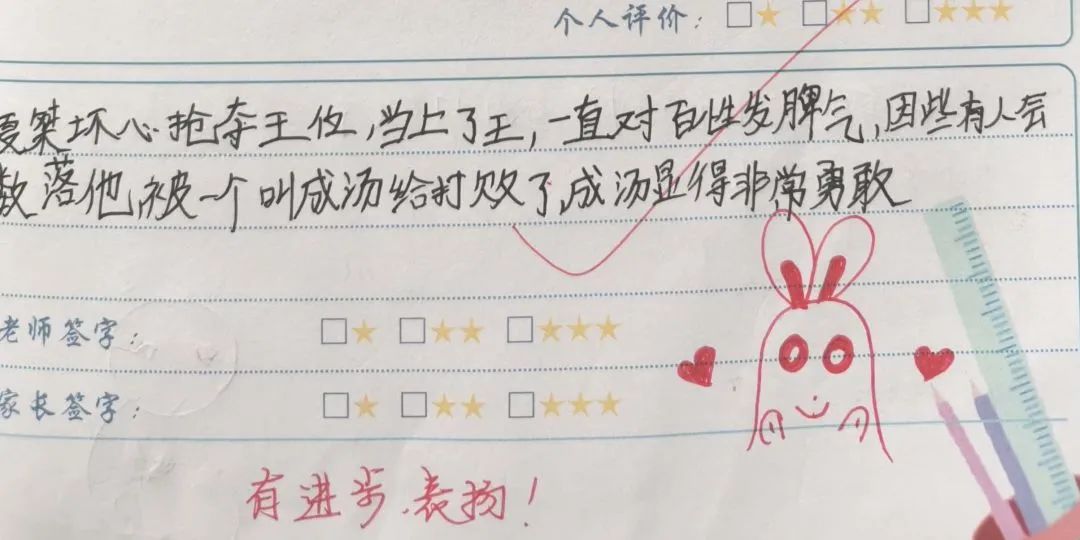 个人评价：□★ □★★ □★★★
夏桀坏心抢夺王位,当上了王,一直对百性发脾气,因些有人会
数落他,被一个叫成汤给打败了,成汤显得非常勇敢
老师签字：□★ □★★ □★★★
家长签字：□★ □★★ □★★★
有进步.表扬！